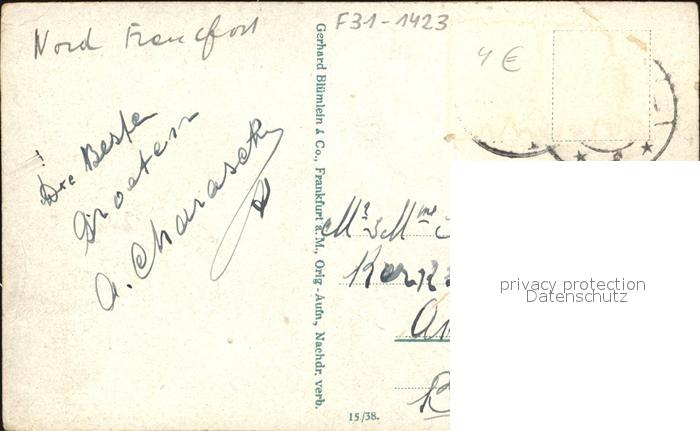 Nord Francfort
F31-1423
4 €
Die Besten
Groeten
A.
Gerhard Blümlein & Co., Frankfurt a.M., Orig.-Aufn., Nachdr. verb.
Mr & Mme
15/38.
privacy protection
Datenschutz